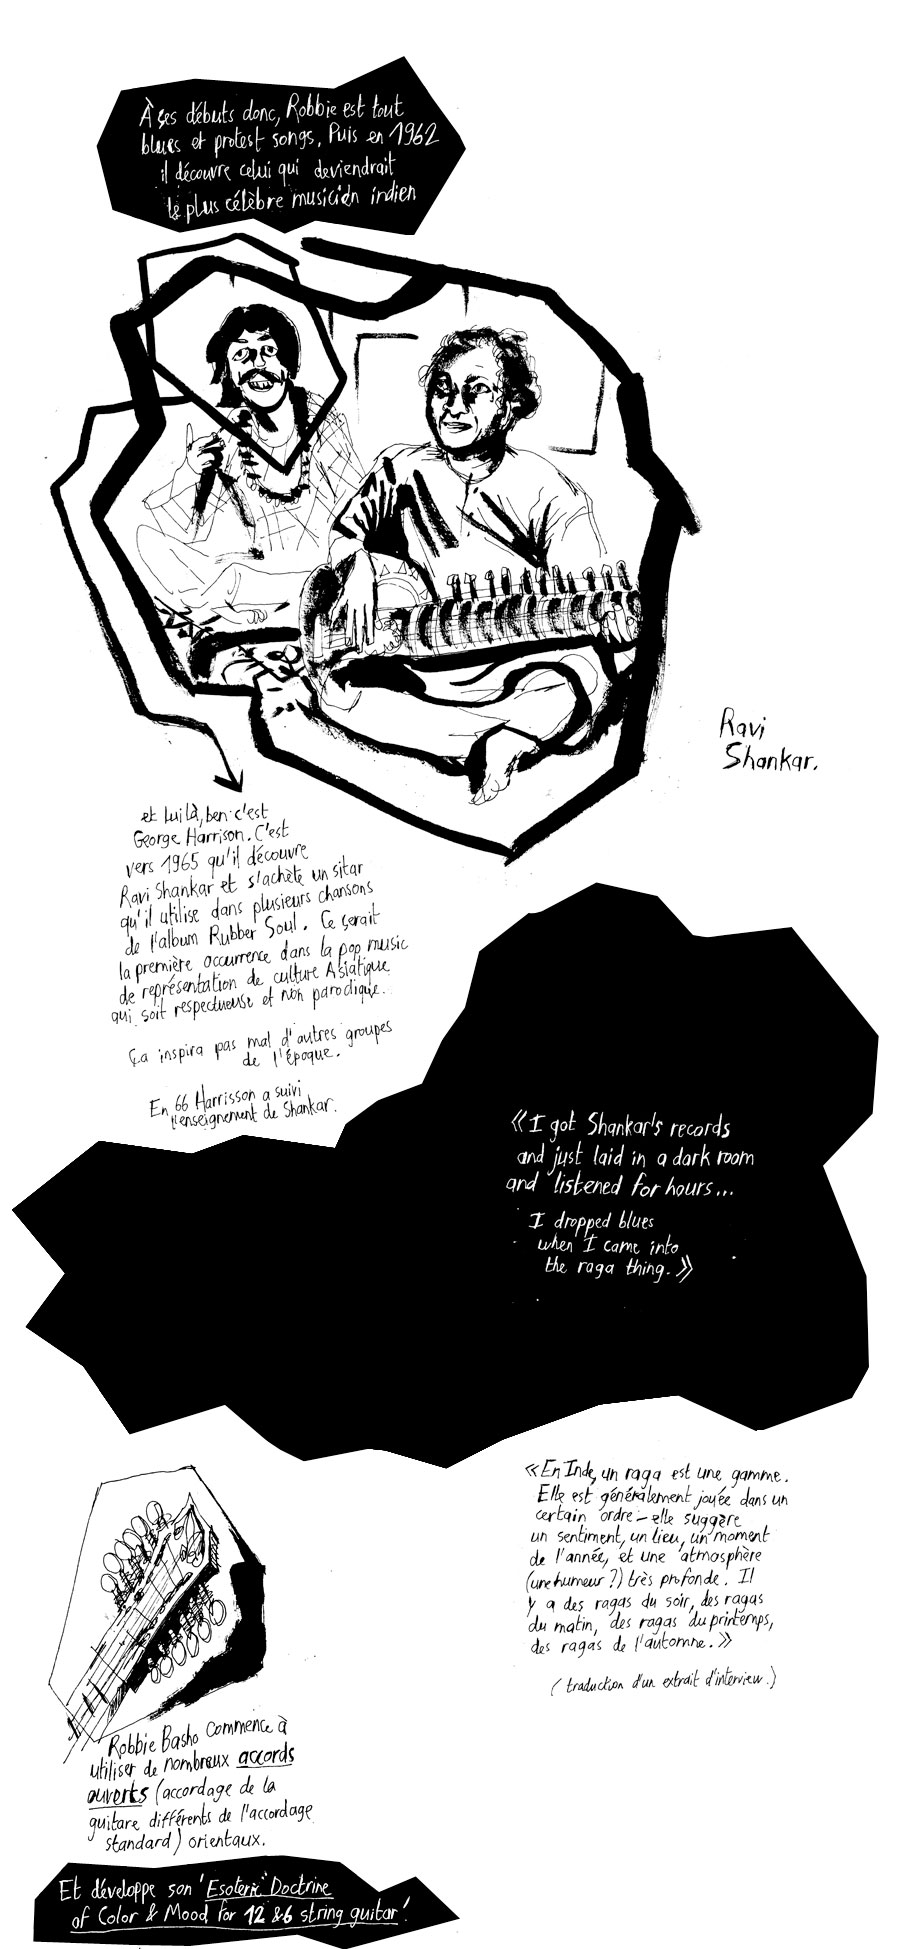 À ses débuts donc, Robbie est tout
blues et protest songs. Puis en 1962
il découvre celui qui deviendrait
le plus célèbre musicien indien
Ravi
Shankar.
et lui là, ben c'est
George Harrison. C'est
vers 1965 qu'il découvre
Ravi Shankar et s'achète un sitar
qu'il utilise dans plusieurs chansons
de l'album Rubber Soul. Ce serait
la première occurrence dans la pop music
de représentation de culture Asiatique
qui soit respectueuse et non parodique.
Ça inspira pas mal d'autres groupes
de l'époque.
En 66 Harrisson a suivi
l'enseignement de Shankar.
« I got Shankar's records
and just laid in a dark room
and listened for hours...
I dropped blues
when I came into
the raga thing. »
« En Inde, un raga est une gamme.
Elle est généralement jouée dans un
certain ordre – elle suggère
un sentiment, un lieu, un moment
de l'année, et une atmosphère
(une humeur ?) très profonde. Il
y a des ragas du soir, des ragas
du matin, des ragas du printemps,
des ragas de l'automne. »
( traduction d'un extrait d'interview. )
Robbie Basho commence à
utiliser de nombreux accords
ouverts (accordage de la
guitare différents de l'accordage
standard) orientaux.
Et développe son 'Esoteric Doctrine
of Color & Mood for 12 & 6 string guitar'!